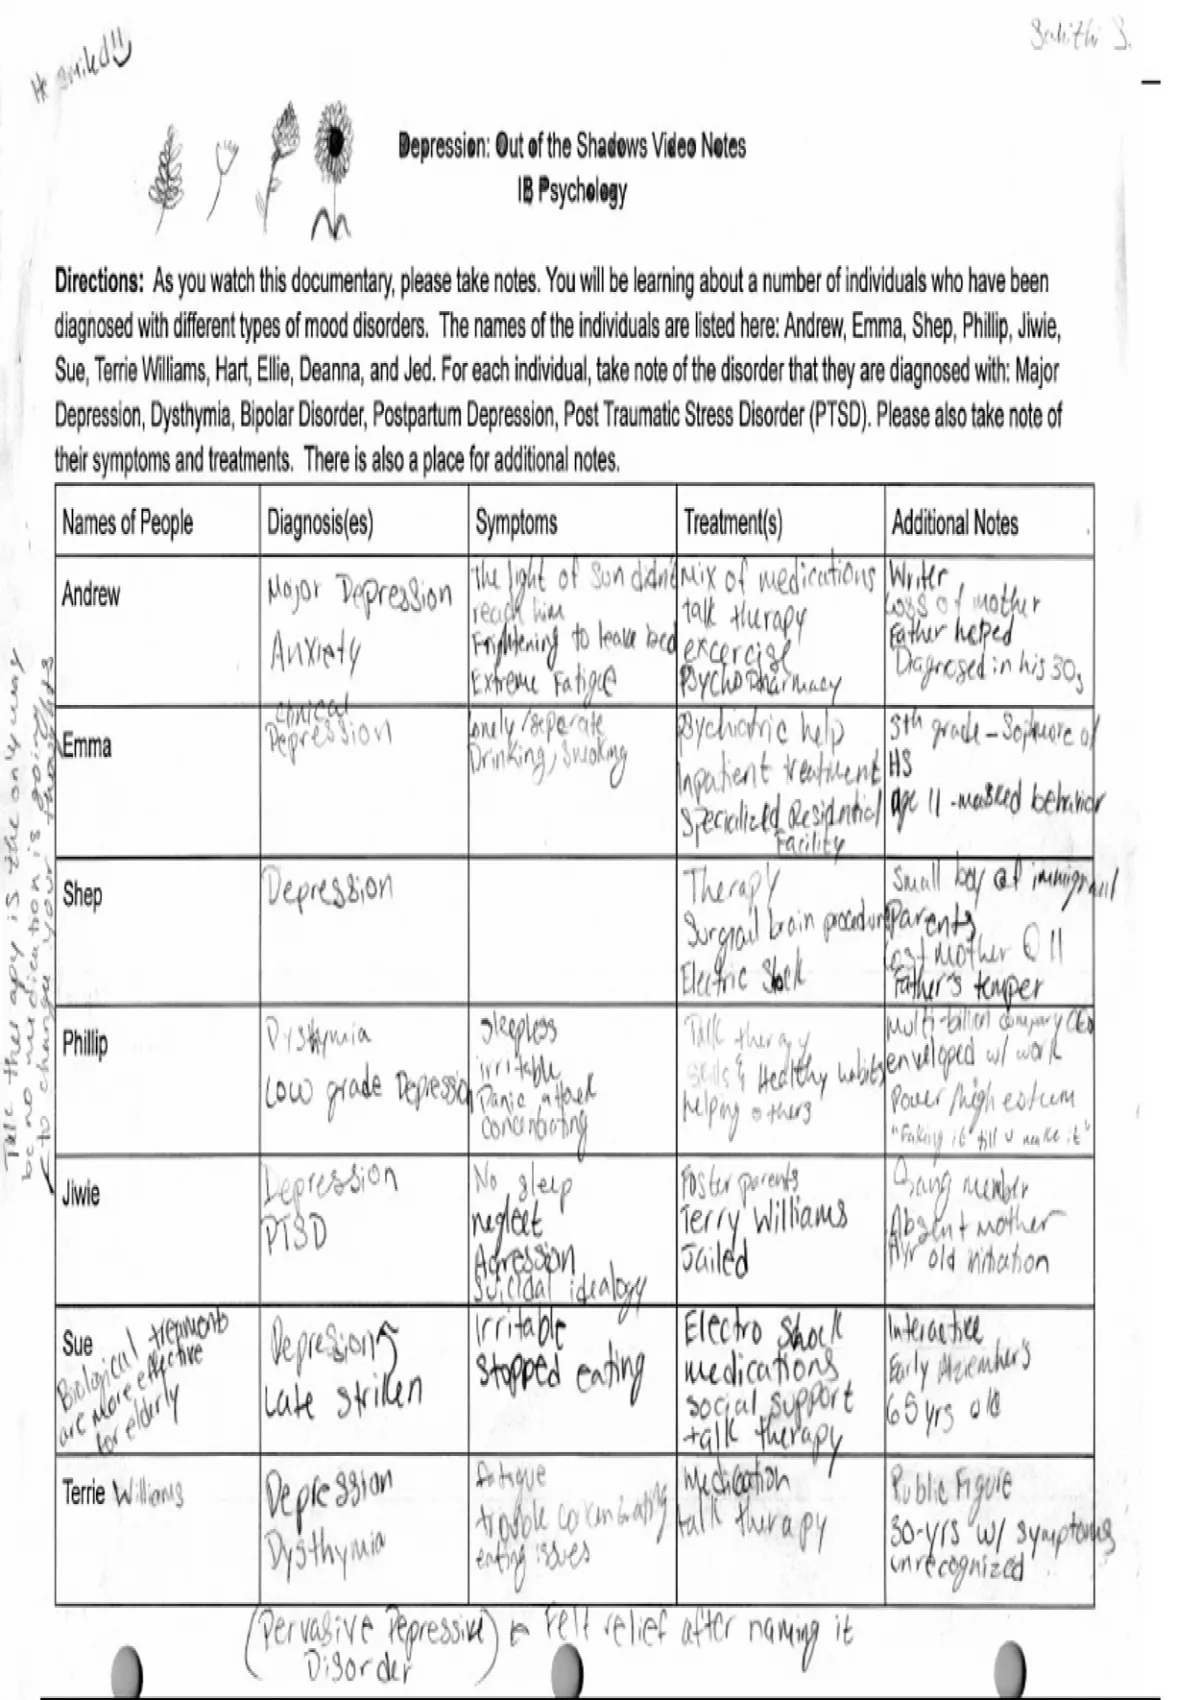 He smiled!!
Sahithi S.
Depression: Out of the Shadows Video Notes
IB Psychology
Directions: As you watch this documentary, please take notes. You will be learning about a number of individuals who have been
diagnosed with different types of mood disorders. The names of the individuals are listed here: Andrew, Emma, Shep, Phillip, Jiwie,
Sue, Terrie Williams, Hart, Ellie, Deanna, and Jed. For each individual, take note of the disorder that they are diagnosed with: Major
Depression, Dysthymia, Bipolar Disorder, Postpartum Depression, Post Traumatic Stress Disorder (PTSD). Please also take note of
their symptoms and treatments. There is also a place for additional notes.
Names of People
Diagnosis(es)
Symptoms
Treatment(s)
Additional Notes
Andrew
Major Depression
Anxiety
The light of sun didn't
reach him
Frightening to leave bed
Extreme Fatigue
Mix of medications
talk therapy
excercise
Psychopharmacy
Writer
Loss of mother
Father helped
Diagnosed in his 30s
Emma
clinical
Depression
lonely/seperate
Drinking, Smoking
Psychiatric help
Inpatient treatment
Specialized Residential
Facility
5th grade - Sophmore of
HS
age 11 - masked behavior
Shep
Depression
Therapy
Surgical brain procedure
Electric Shock
Small boy of immigrant
Parents
Lost Mother @ 11
Father's temper
Phillip
Dysthymia
Low grade Depression
sleepless
irritable
Panic attack
concentrating
Talk therapy
skills & Healthy habits
helping others
Multi-billion company CEO
enveloped w/ work
Power/high esteem
"Faking it till u make it"
Jiwie
Depression
PTSD
No sleep
neglect
Agression
Suicidal idealogy
Foster parents
Terry Williams
Jailed
Gang member
Absent mother
yr old initiation
Sue
Biological treatments
are more effective
for elderly
Depression
Late striken
Irritable
Stopped eating
Electro Shock
medications
social support
talk therapy
Interactive
Early
65 yrs old
Terrie Williams
Depression
Dysthymia
fatigue
trouble concentrating
eating issues
Medication
talk therapy
Public Figure
30-yrs w/ symptoms
unrecognized
(Pervasive Depressive) Felt relief after naming it
Disorder
Talk therapy is the only way
be no medication is going
to change your thoughts